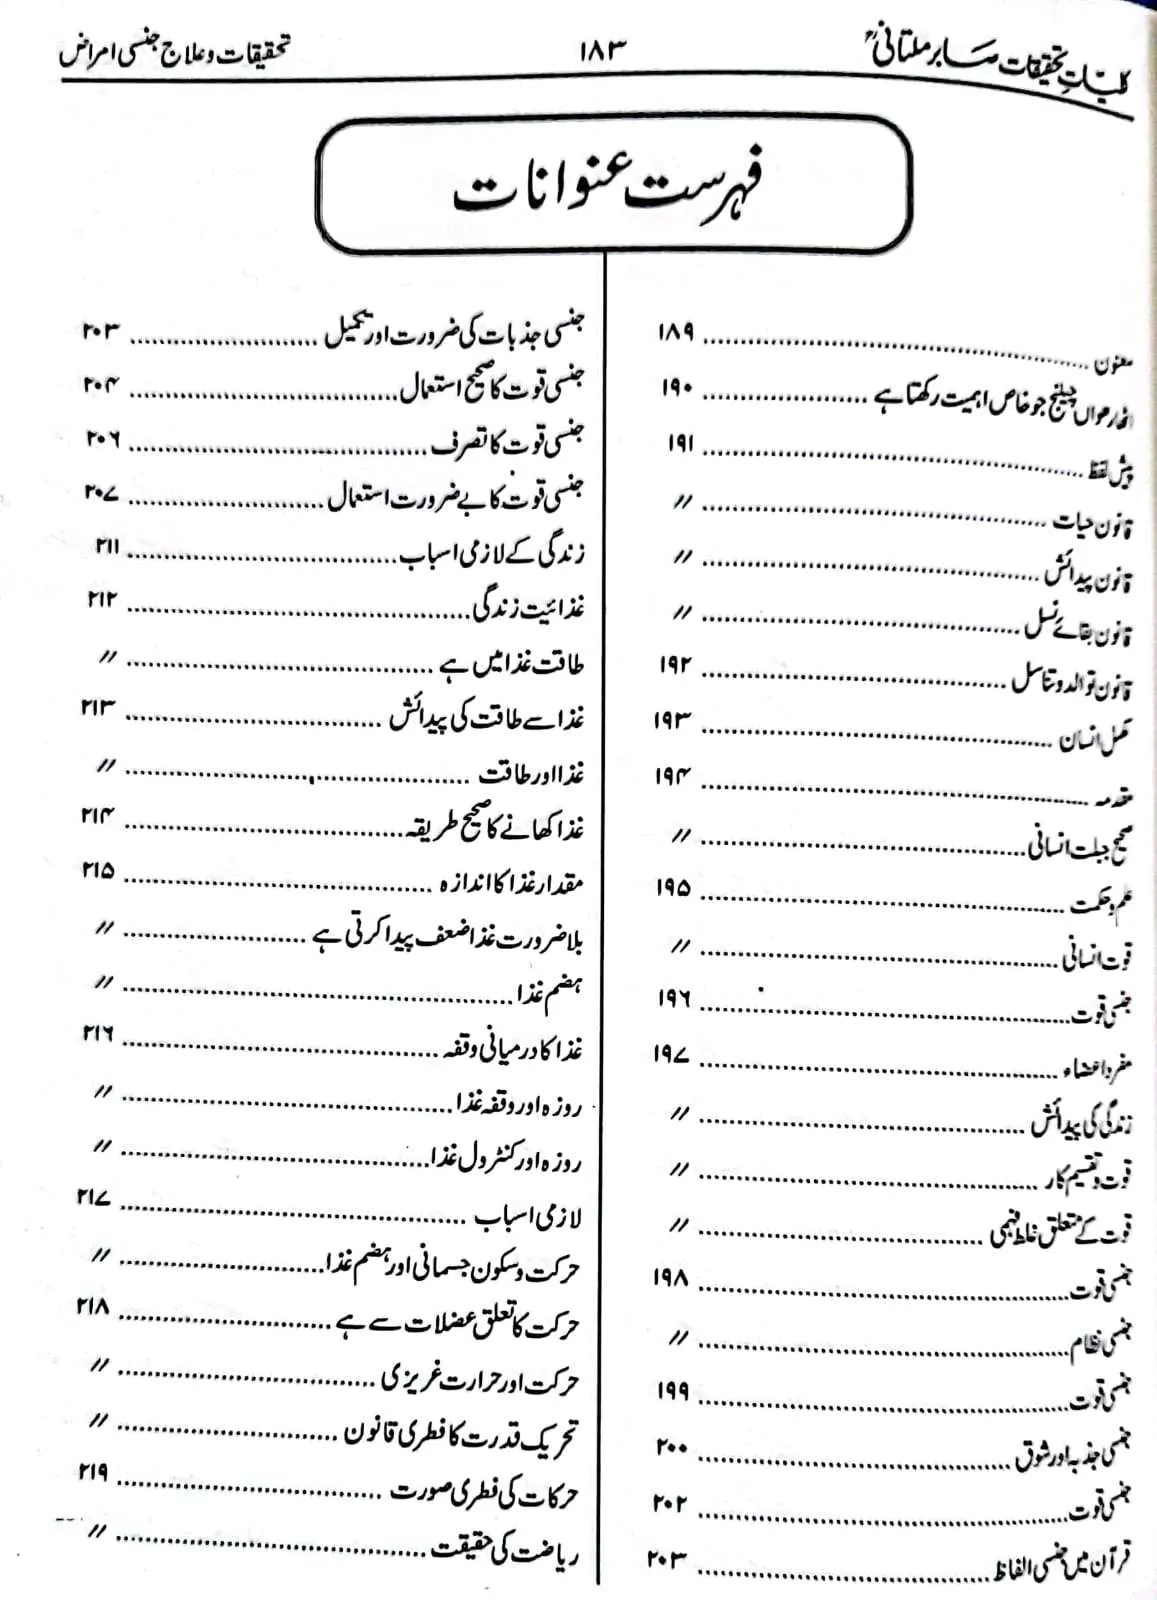 کلیات تحقیقات صابر ملتانیؒ ۱۸۳ تحقیقات و علاج جنسی امراض
فہرست عنوانات
معنون ۱۸۹
اٹھارھواں چیلنج جو خاص اہمیت رکھتا ہے ۱۹۰
پیش لفظ ۱۹۱
قانون حیات ״
قانون پیدائش ״
قانون بقائے نسل ״
قانون توالد و تناسل ۱۹۲
مکمل انسان ۱۹۳
مقدمہ ۱۹۴
صحیح جبلت انسانی ״
علم و حکمت ۱۹۵
قوت انسانی ״
جنسی قوت ۱۹۶
مفرد اعضاء ۱۹۷
زندگی کی پیدائش ״
قوت و تقسیم کار ״
قوت کے متعلق غلط فہمی ״
جنسی قوت ۱۹۸
جنسی نظام ״
جنسی قوت ۱۹۹
جنسی جذبہ اور شوق ۲۰۰
جنسی قوت ۲۰۲
قرآن میں جنسی الفاظ ۲۰۳
جنسی جذبات کی ضرورت اور تکمیل ۲۰۳
جنسی قوت کا صحیح استعمال ۲۰۴
جنسی قوت کا تصرف ۲۰۶
جنسی قوت کا بے ضرورت استعمال ۲۰۷
زندگی کے لازمی اسباب ۲۱۱
غذائیت زندگی ۲۱۲
طاقت غذا میں ہے ״
غذا سے طاقت کی پیدائش ۲۱۳
غذا اور طاقت ״
غذا کھانے کا صحیح طریقہ ۲۱۴
مقدار غذا کا اندازہ ۲۱۵
بلا ضرورت غذا ضعف پیدا کرتی ہے ״
ہضم غذا ״
غذا کا درمیانی وقفہ ۲۱۶
روزہ اور وقفہ غذا ״
روزہ اور کنٹرول غذا ״
لازمی اسباب ۲۱۷
حرکت و سکون جسمانی اور ہضم غذا ״
حرکت کا تعلق عضلات سے ہے ۲۱۸
حرکت اور حرارت غریزی ״
تحریک قدرت کا فطری قانون ״
حرکات کی فطری صورت ۲۱۹
ریاضت کی حقیقت ״